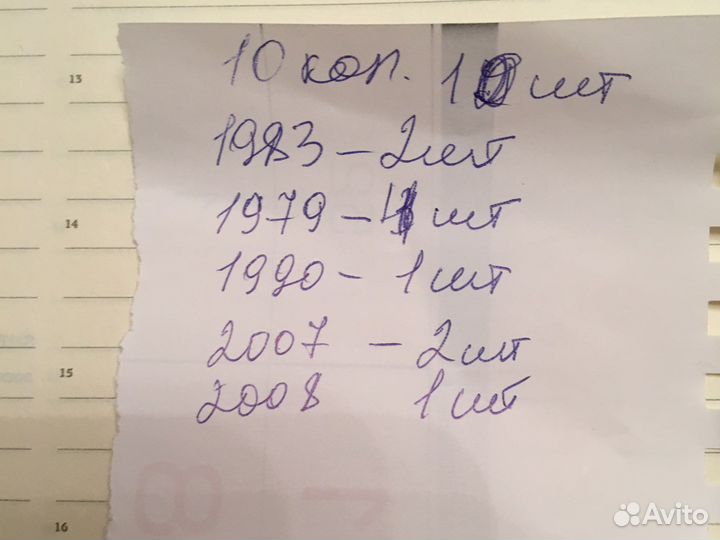 13
10 коп. 10 шт
1983 - 2 шт
14
1979 - 4 шт
1990 - 1 шт
2007 - 2 шт
15
2008 1 шт
16
Avito